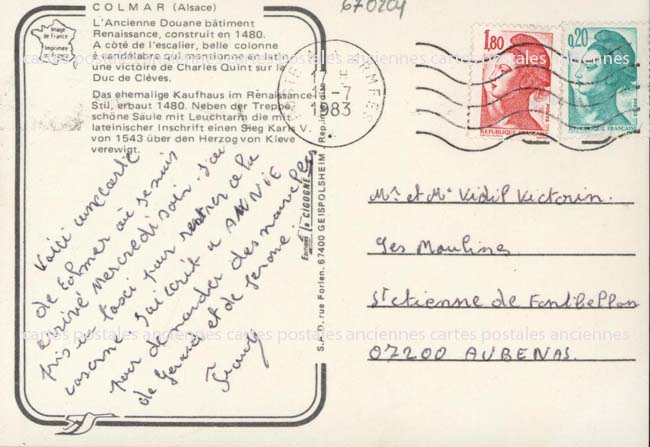 COLMAR (Alsace)
Image
de France
Imprimée
L'Ancienne Douane bâtiment
Renaissance, construit en 1480.
A côté de l'escalier, belle colonne
à candélabre qui mentionne en latin
une victoire de Charles Quint sur le
Duc de Clèves.
Das ehemalige Kaufhaus im Renaissance
Stil, erbaut 1480. Neben der Treppe,
schöne Säule mit Leuchtarm die mit
lateinischer Inschrift einen Sieg Karls V.
von 1543 über den Herzog von Kleve
verewigt.
Voici une carte
de Colmar où je suis
arrivé mercredi soir. J'ai
pris un taxi pour rentrer à la
caserne. J'ai écrit à ANNIE
pour demander des nouvelles
de et de
Franck
Editions la CIGOGNE
S.E.P.D. rue Forlen. 67400 GEISPOLSHEIM
670204
13-7
1983
1,80
REPUBLIQUE FRANÇAISE
0,20
REPUBLIQUE FRANÇAISE
Mr et Me Vidil Victorin.
Les Moulines
St Etienne de Fontbellon
07200 AUBENAS.
cartes postales anciennes cartes postales anciennes cartes postales anciennes
cartes postales anciennes cartes postales anciennes cartes postales anciennes